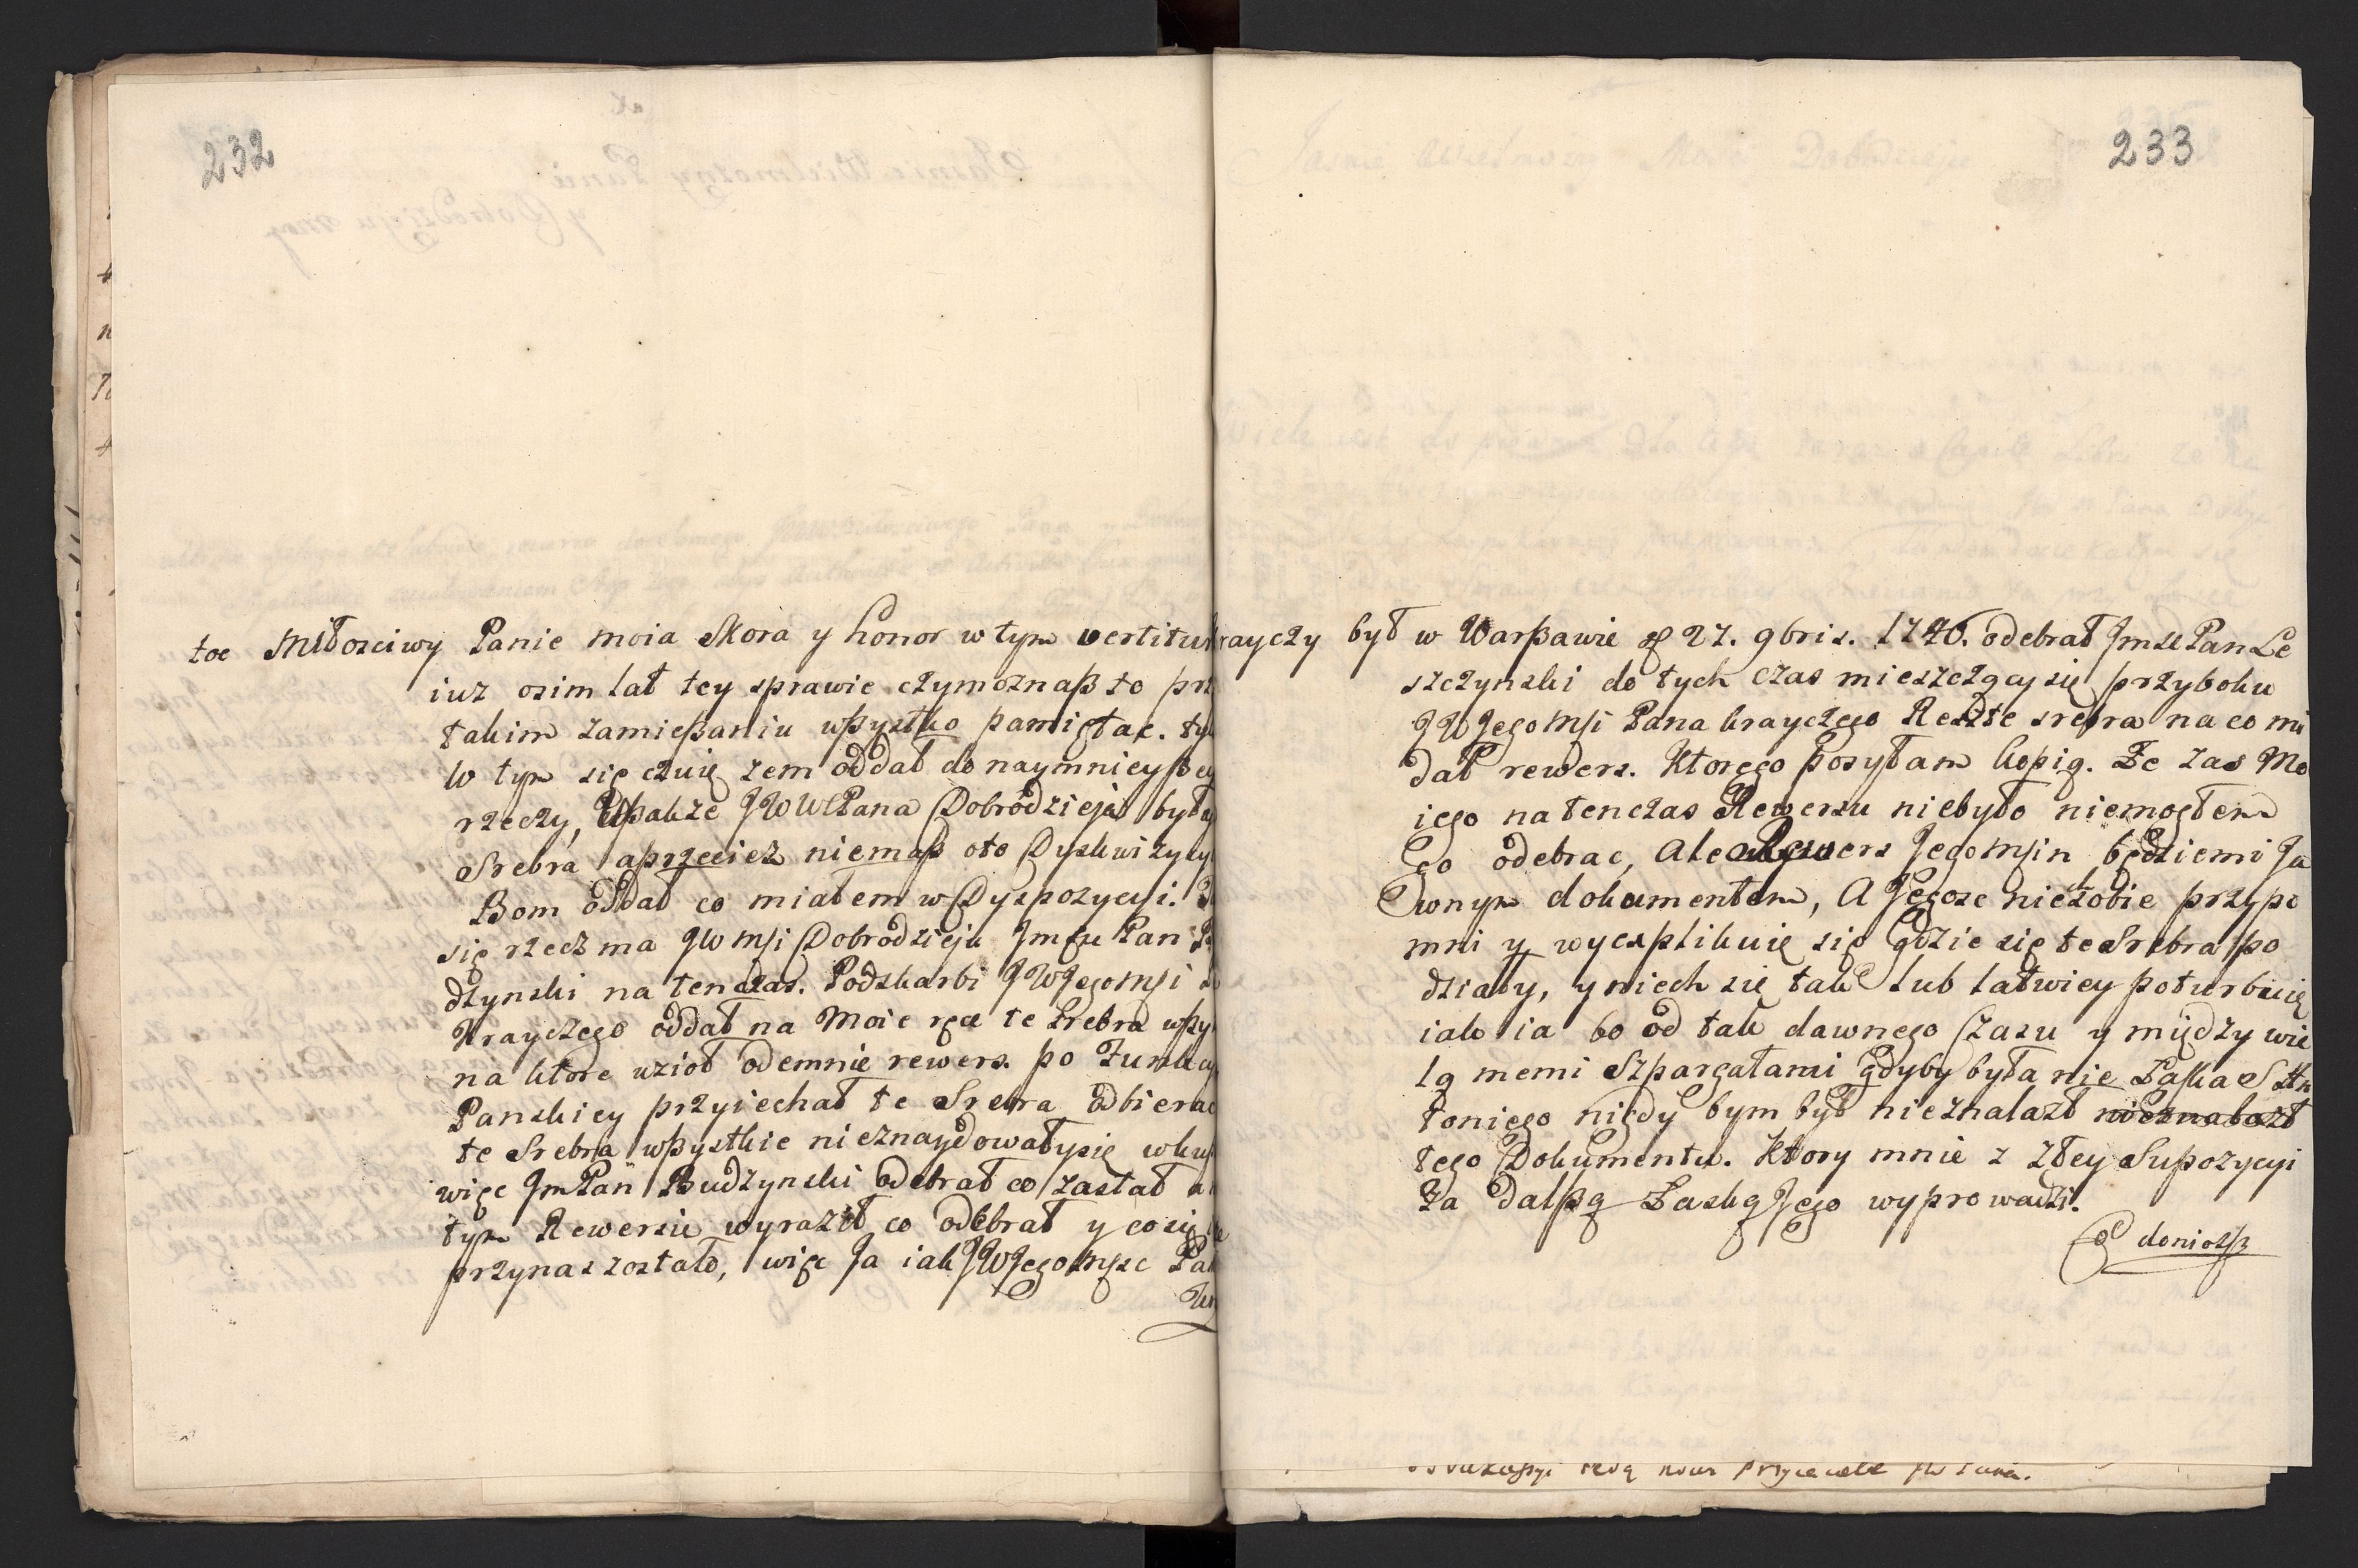 232
toc Miłosciwy Panie moia Skora y honor w tym vertitur
iuz osim lat tey sprawie czymoznaß to prz
takim zamießaniu wßystko pamiętac. tyl
W tym się czuię zem oddał do naymnieyßey
rzeczy, Wßakze JWWPana Dobrodzieja były
Srebra aprzeciez niemaß oto Dyskwizycy
Bom oddał co miałem w Dyspozycyi.
się rzecz ma JWMsi Dobrodzieju Jmsc Pan
dzynski na tenczas. Podskarbi JWJegomsi
Krayczego oddał na Moie ręce te Srebra wßy
na ktore wzioł odemnie rewers. po
Panskiey przyiechał te Srebra odbierac
te Srebra wßystkie nieznaydowałysię
więc JmPan Budzynski odebrał co zastał
tym Rewersie wyraził co odebrał y co się
przynas zostało, więc Ja iak JWJegomsc Pan
233
krayczy był w Warßawie 27. 9bris. 1726. odebrał Jmsc Pan Le
szczynski do tych czas mieszczący się przyboku
JWJegomsi Pana krayczego Reszte srebra na co mi
dał rewers. Ktorego posyłam kopią. Ze zas Mo
iego natenczas Rewersu niebyło niemogłem
Go odebrac, Ale Rewers Jegomsin będziemi Ja
wnym dokumentem, A Jegosc niech sobie przypo
mni y wyexplikuię się gdzie się te Srebra po
działy, y niech się tak lub łatwiey poturbuię
iako ia bo od tak dawnego Czasu y między wie
lą memi Szpargałami gdyby była nie Łaska S
toniego nigdy bym był nieznalazł nieznalazł
tego Dokumentu. Ktory mnie z złey Supozycyi
Za dalßą Łaską Jego wyprowadzi.
donioß